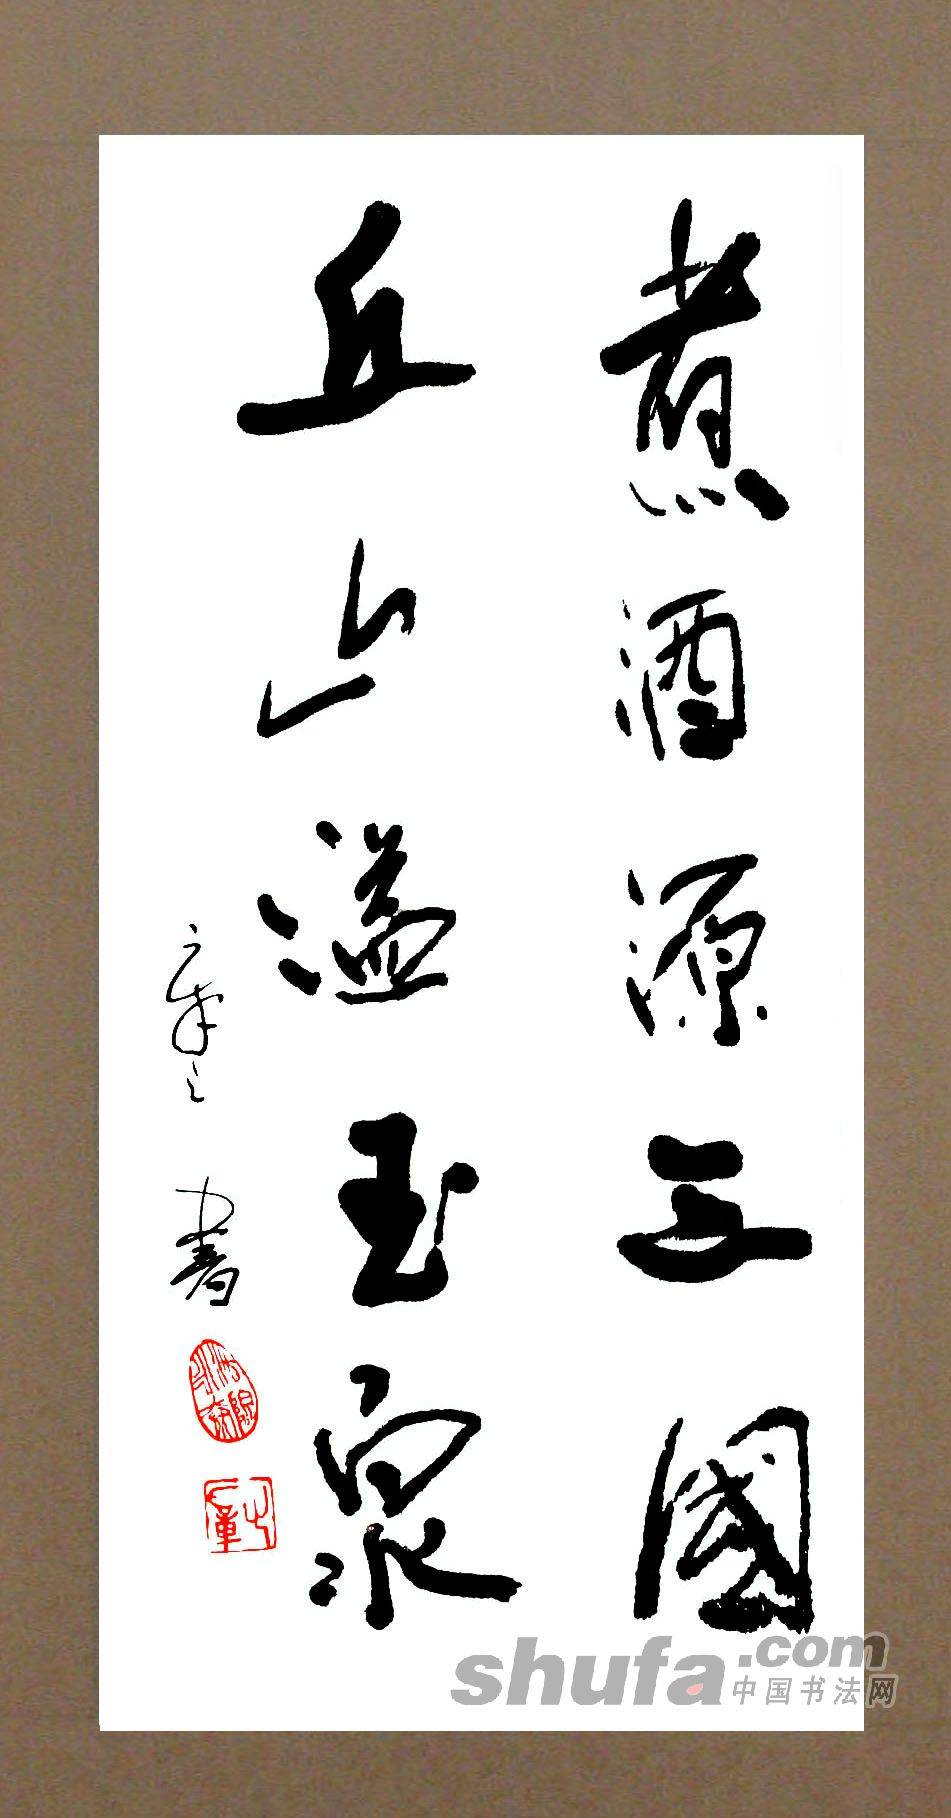 煮酒源三國
丘山溢玉泉
章之 書
shufa.com
中国书法网